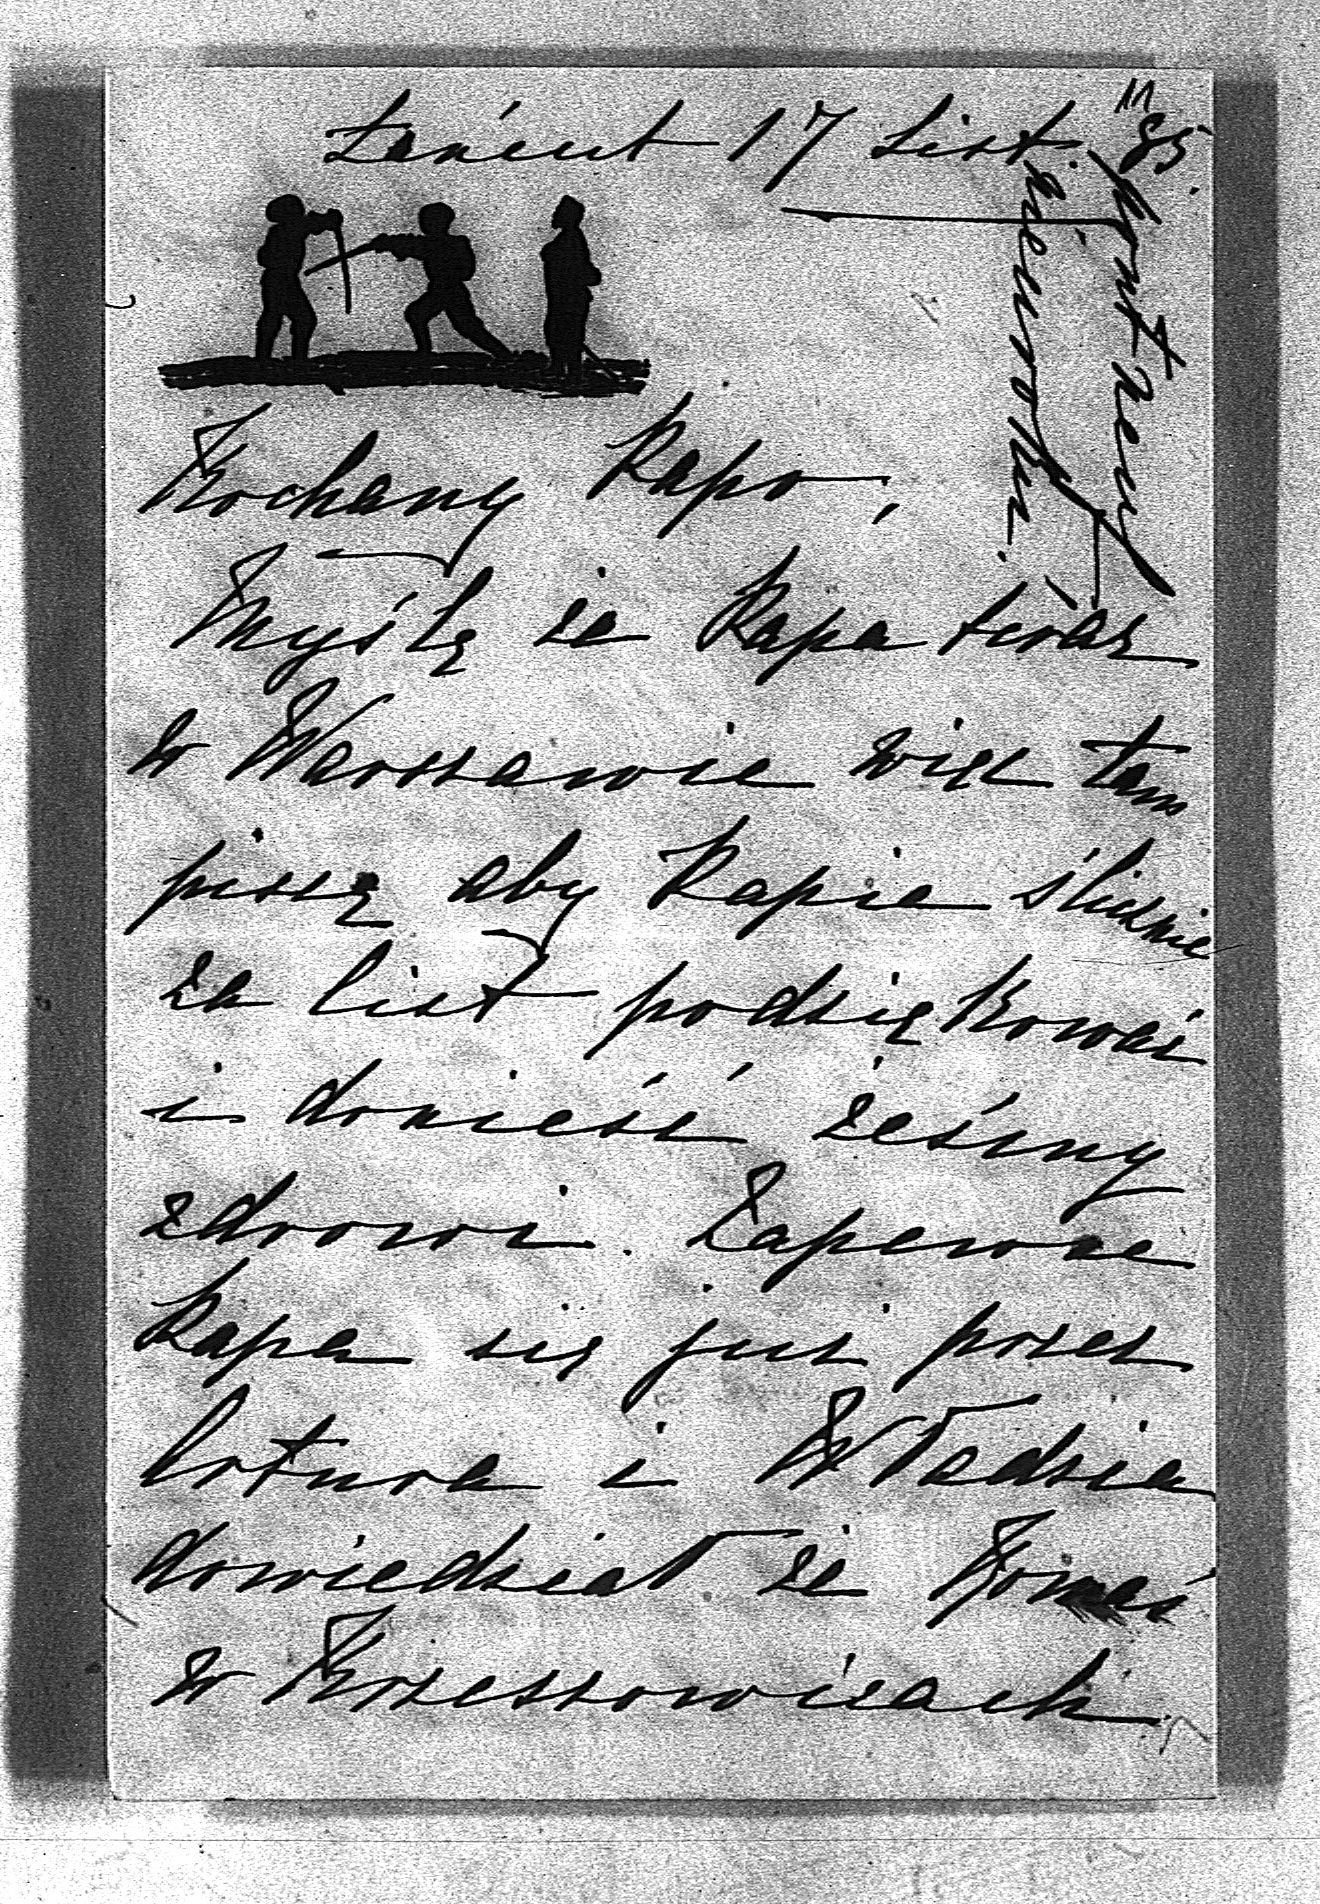 Łańcut 17 List. 85
Kochany Papo,
Myślę że Papa teraz
w Warszawie więc tam
piszę aby Papie ślicznie
za list podziękować
i donieść żeśmy
zdrowi. Zapewne
Papa się już przez
Artura i Władzia
dowiedział że
w Krzeszowicach